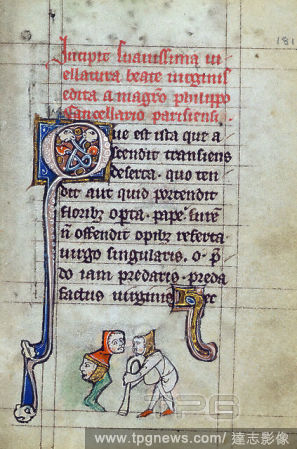 181
Incipit suavissima vi
ellatura beate virginis
edita a magro philippo
Cancellario parisiensi.
Que est ista que a
scendit transiens
deserta. quo ten
dit aut quid portendit
floribz opta. pape. suren
n offendit opibz referta.
virgo singularis. o. p
do iam predaris. preda
factus virginis
TPG
www.tpgnews.com/ 達志影像